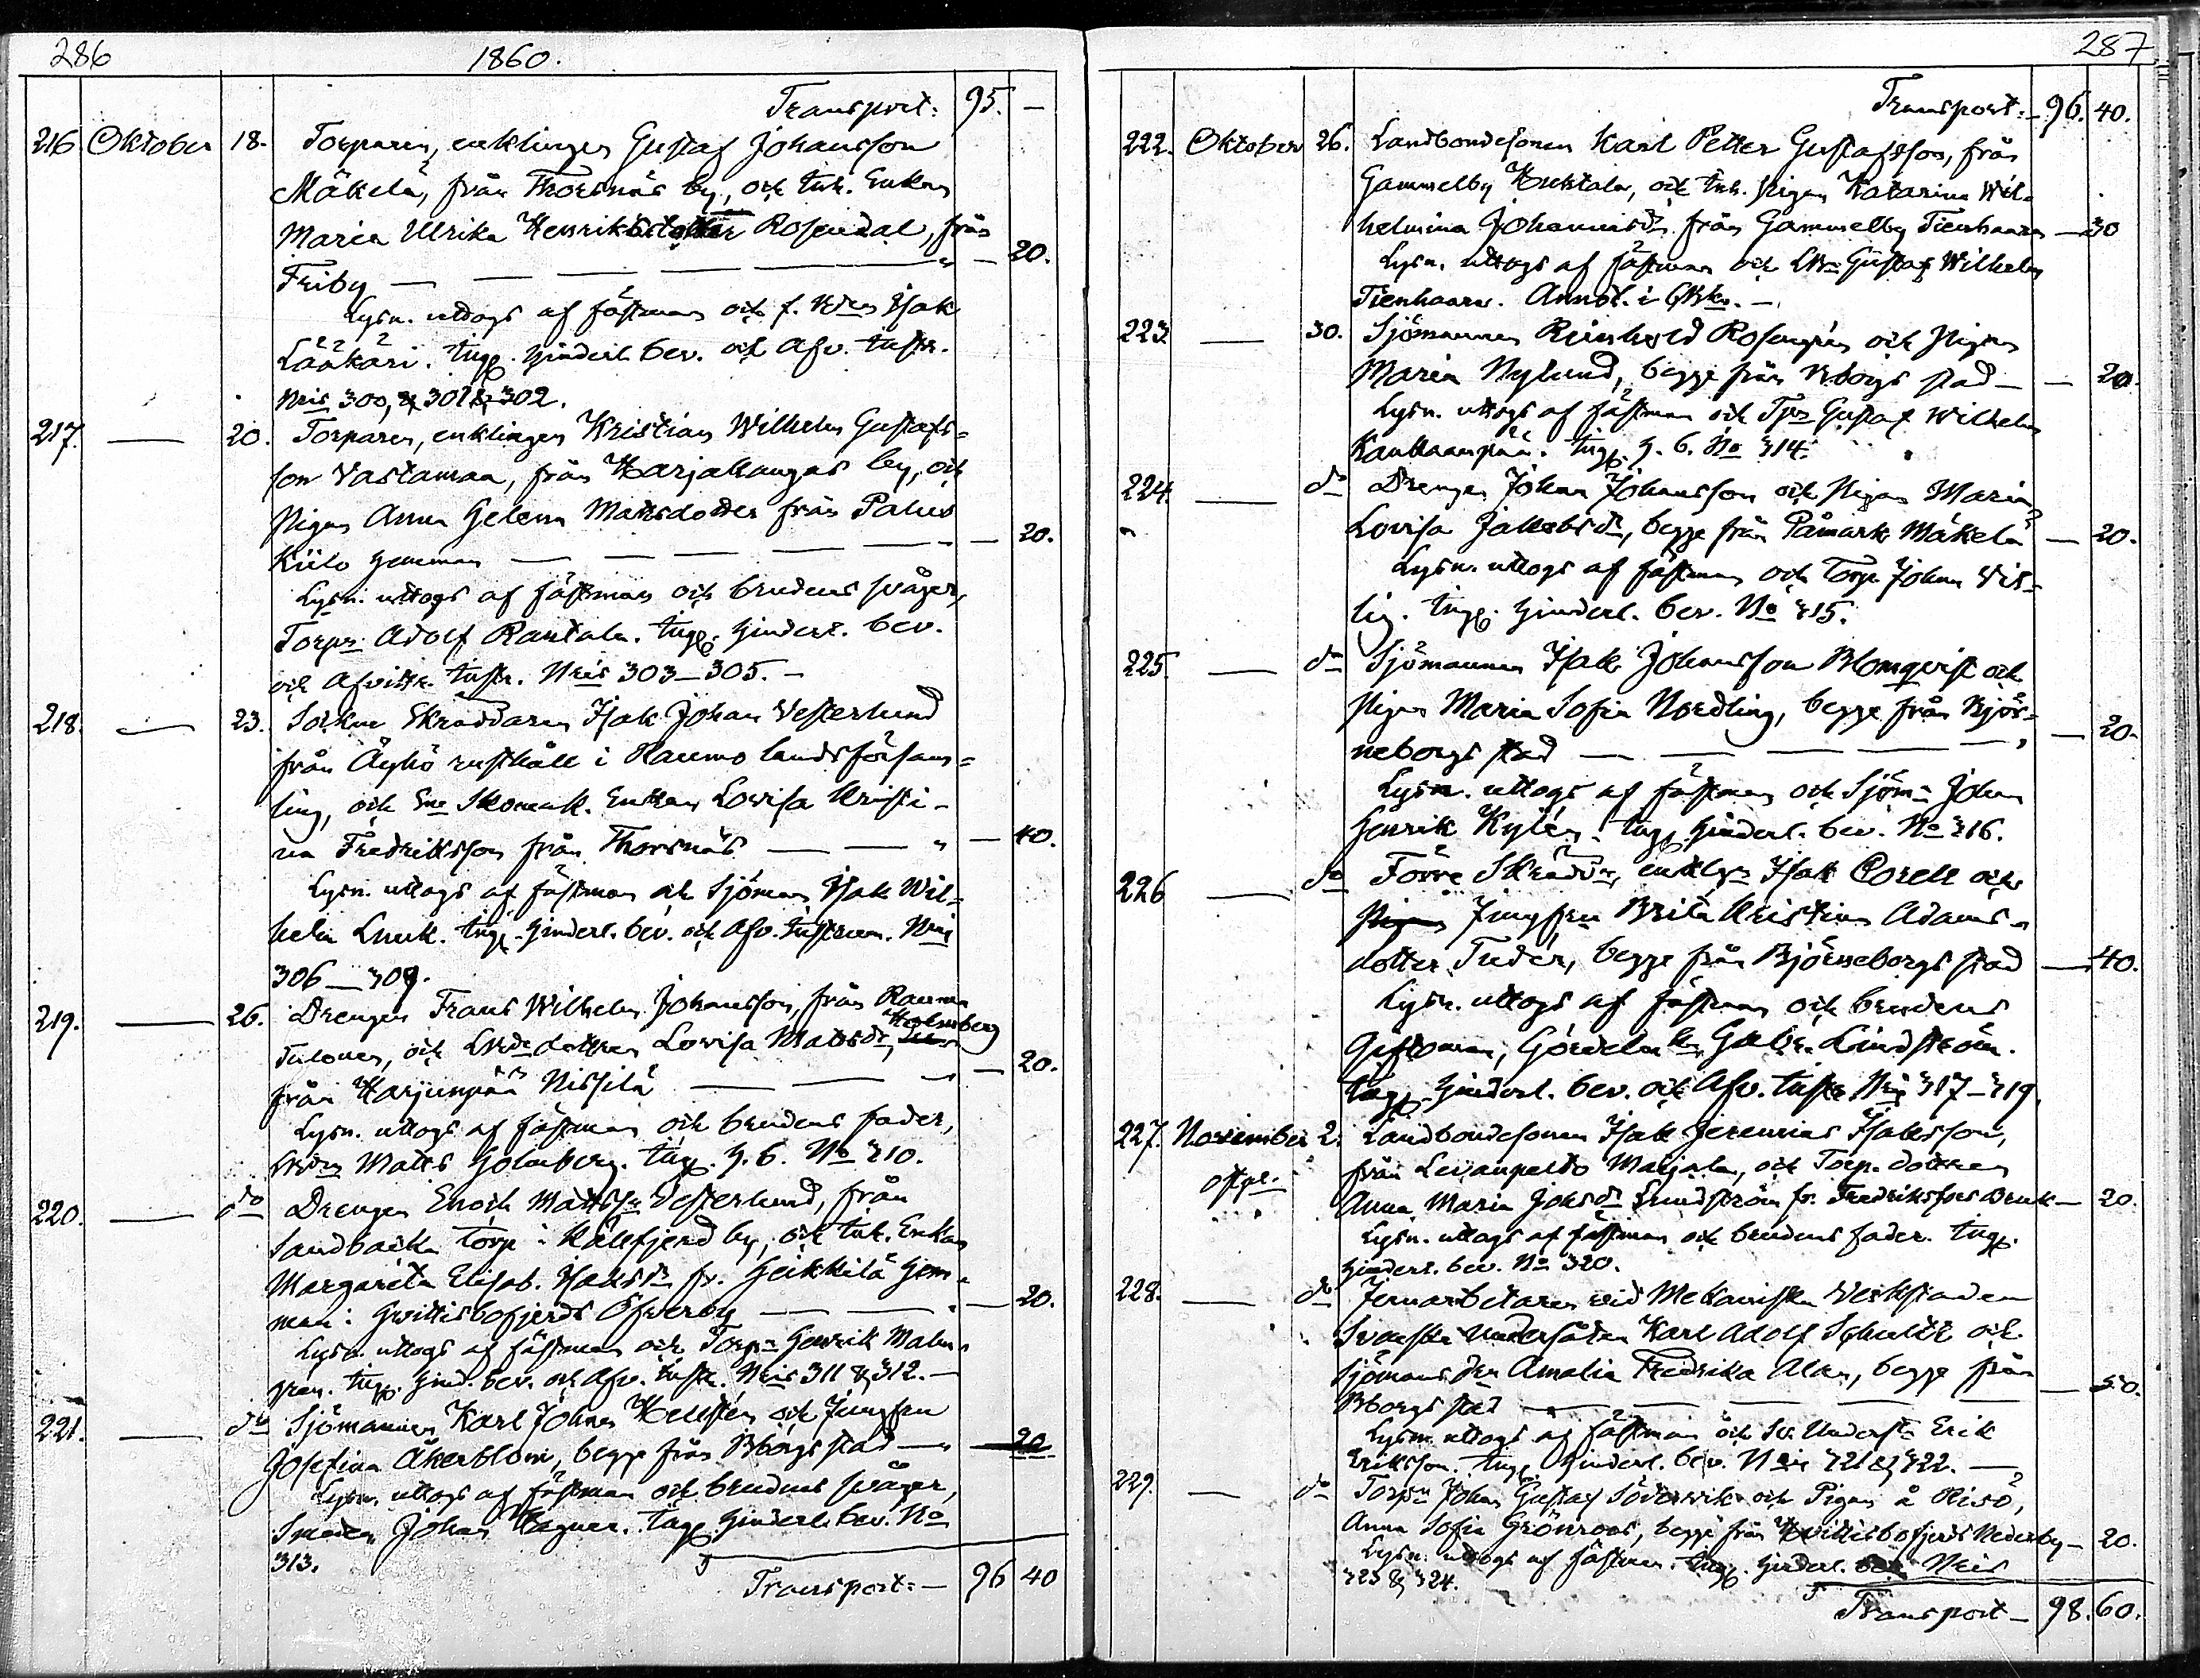 286
1860.
Transport: 95. —
216 Oktober 18. Torparen, enklingen Gustaf Johansson
Mäkelä, från Thorsnäs by, och Enkan
Maria Ulrika Henriksdotter Rosendal, från
Friby — — — — " — 20.
Lysn. uttogs af fästman och f. Isak
Lääkäri. tryg. hinderl. bev. och Afv. tustr.
Nris 300, & 301 & 302.
217. — 20. Torparen, enklingen Kristian Wilhelm Gustafs=
son Vastamaa, från Harjakangas by, och
Pigan Anna Helena Mattsdotter från Palus
Kiilo hemman — — — — — — 20.
Lysn. uttogs af fästman och brudens svåger,
Torpn Adolf Rantala. tryg. hinderl. bev.
och Afvittr. tustr. Nris 303—305. —
218. — 23. Sockne Skräddaren Isak Johan Vesterlund
från Äyhö rusthåll i Raumo landsförsam=
ling, och Skomak. Enkan Lovisa Kristi-
na Fredriksson från Thorsnäs — — " — 40.
Lysn. uttogs af fästman och Sjöman Isak Wil=
helm Lnuk. tryg. hinderl. bev. och Afv. tustr. Nris
306—309.
219. — 26. Drengen Frans Wilhelm Johansson, från Raumo
Holmberg
Tulonen, och dottren Lovisa Mattsdr,
från Harjunpää Nissilä — — — " — 20.
Lysn. uttogs af fästman och brudens fader,
Matts Holmberg. tryg. h. b. No 310.
220. — do Drengen Enoch Mattssn Vesterlund, från
Sandbacka torp i Kållfjerd by, och Enkan
Margareta Elisab. Isaksdr fr. Heikkilä hem-
man i Hvittisbofjerds Öfverby — — — 20.
Lysn. uttogs af fästman och Torpn Henrik Malm-
gren. tryg. hind. bev. och Afv. tustr. Nris 311 & 312. —
221. — do Sjömannen Karl Johan Hellstén och Jungfru
Josefina Åkerblom, begge från Bborgs stad — 20.
Lysn. uttogs af fästman och brudens svåger,
Smeden Johan Wagner. tryg. hinderl. bev. No
313.
Transport: — 96 40
287
Transport: — 96. 40.
222. Oktober 26. Landbondesonen Karl Petter Gustafsson, från
Gammelby Krektala, och Pigan Katarina Wil-
helmina Johannisdr från Gammelby Tienhaara — 30
Lysn. uttogs af fästman och Gustaf Wilhelm
Tienhaara. Annot. i
223. — 30. Sjömannen Reinhold Rosengrén och Pigan
Maria Nylund, begge från Bborgs stad — — 20.
Lysn. uttogs af fästman och Tpr Gustaf Wilhelm
Kankaanpää. tryg. h. b. No 314.
224. — do Drengen Johan Johansson och Pigan Maria
Lovisa Jakobsdr, begge från Påmark Mäkelä — 20.
Lysn. uttogs af fästman och Torp. Johan Vik-
lig. tryg. hinderl. bev. No 315.
225. — do Sjömannen Isak Johansson Blomqvist och
Pigan Maria Sofia Nordling, begge från Björ=
neborgs stad — — — — — " — 20.
Lysn. uttogs af fästman och Sjömn Johan
Henrik Kylén. tryg. hinderl. bev. No 316.
226 — do Förre Skräddn, enklgn Isak Corell och
Pigan Jungfru Brita Kristina Adams-
dotter Tudér, begge från Björneborgs stad — 40.
Lysn. uttogs af fästman och brudens
Giftoman, Gördelm. Gabr. Lindström.
tryg. hinderl. bev. och Afv. tustr. Nris 317—319.
227. November 2. Landbondesonen Isak Jeremias Isaksson,
från Levanpelto Marjala, och Torp. dottren
Anna Maria Johsdr Lundström fr. Fredriksfors Bruk — 20.
Lysn. uttogs af fästman och brudens fader. tryg.
hinderl. bev. No 320.
228. — do Jernarbetaren vid Mekaniska Verkstaden
Svenska Undersåten Karl Adolf Schultz och
Sjömans dr Amalia Fredrika Alan, begge från
Bborgs stad — — — — — 50.
Lysn. uttogs af fästman och Sv. Understn Erik
Eriksson. tryg. hinderl. bev. Nris 321 & 322. —
229. — do Torpn Johan Gustaf Södervik och Pigan å Risö,
Anna Sofia Grönroos, begge från Hvittisbofjerds Nederby — 20.
Lysn. uttogs af fästman. tryg. hinderl. bev. Nris
323 & 324.
Transport — 98. 60.